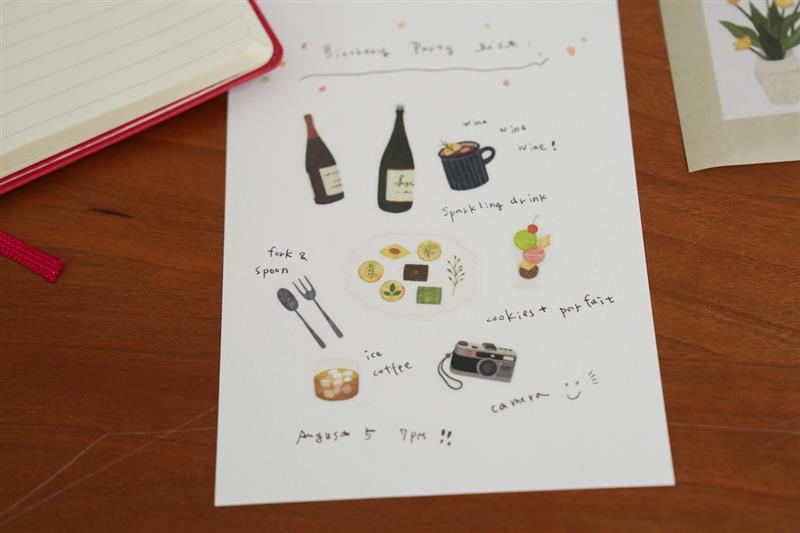 Birthday Party list :
wine
wine
wine !
sparkling drink
fork &
spoon
cookies + parfait
ice
coffee
camera
August 5 7PM !!